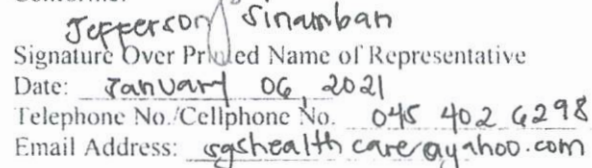 Jefferson Sinamban
Signature Over Printed Name of Representative
Date: January 06, 2021
Telephone No./Cellphone No. 045 402 6298
Email Address: sgshealthcare@yahoo.com